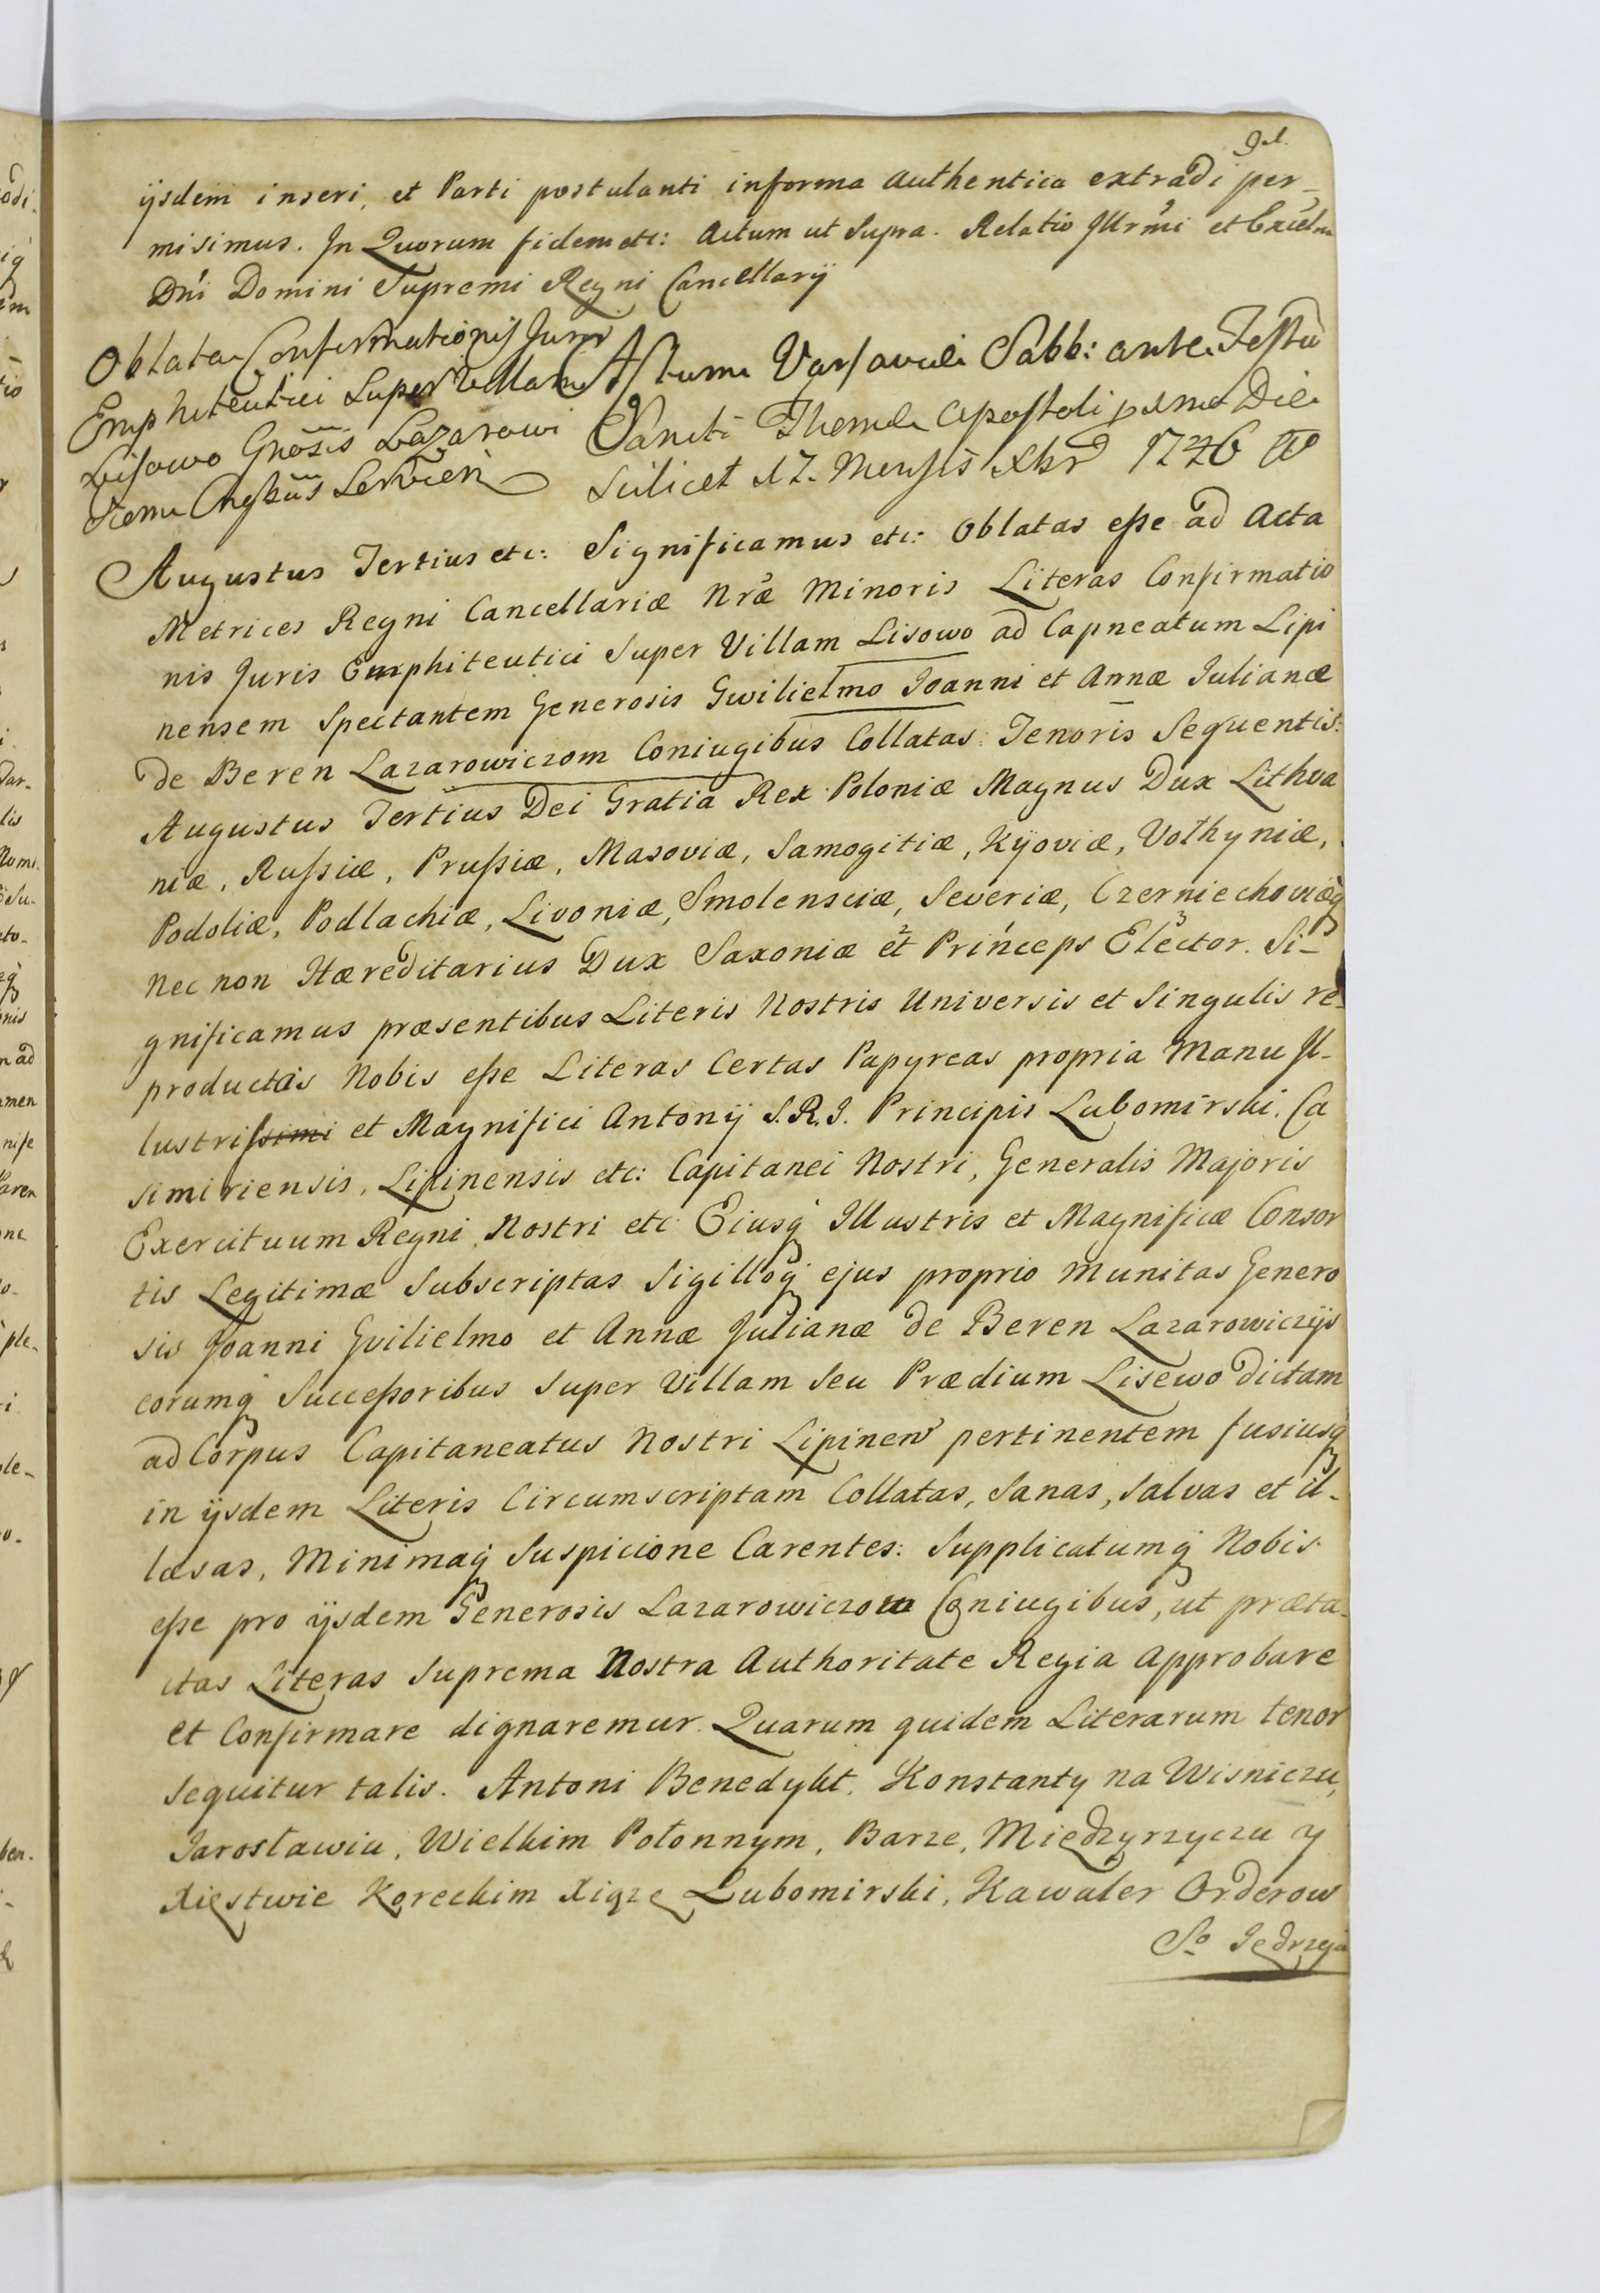 ijsdem inseri, et Parti postulanti in forma authentica extradi per-
misimus. In Quorum fidem etc: Actum ut Supra. Relatio Illrmi et Excelm
Dni Domini Supremi Regni Cancellarij
Oblata Confirmationis Juris
Emphiteutici Super Villam
Lisowo Gnosis Lazarowi
Coniugibus Servien
Actum Varsaviæ Sabb: ante Festu
Sancti Thomæ Apostoli Die
Scilicet 17. Mensis Xbr 1746
Augustus Tertius etc: Significamus etc: Oblatas esse ad Acta
Metrices Regni Cancellariæ Nræ Minoris Literas Confirmatio
nis Juris Emphiteutici Super Villam Lisowo ad Capneatum Lipi
nensem Spectantem Generosis Gwilielmo Joanni et Annæ Julianæ
de Beren Lazarowiczom Coniugibus Collatas Tenoris Sequentis:
Augustus Tertius Dei Gratia Rex Poloniæ Magnus Dux Lithva
niæ, Russiæ, Prussiæ, Masoviæ, Samogitiæ, Kijoviæ, Volhyniæ,
Podoliæ, Podlachiæ, Livoniæ, Smolensciæ, Severiæ, Czerniechoviæq
Nec non Hæreditarius Dux Saxoniæ et Princeps Elector. Si-
gnificamus præsentibus Literis Nostris Universis et Singulis re-
productas Nobis esse Literas Certas Papyreas propria Manu Il-
lustrissimi et Magnifici Antonij S.R.I. Principis Lubomirski. Ca
simiriensis, Lipinensis etc: Capitanei Nostri, Generalis Majoris
Exercituum Regni Nostri etc Eiusq Illustris et Magnificæ Consor
tis Legitimæ Subscriptas Sigilloq ejus proprio munitas Genero
sis Joanni Gvilielmo et Annæ Julianæ de Beren Lazarowiczijs
eorumq Successoribus Super Villam Seu Prædium Lisewo dictam
ad Corpus Capitaneatus Nostri Lipinen pertinentem fusiusq
in ijsdem Literis Circumscriptam Collatas, Sanas, Salvas et il-
læsas, Minimaq Suspicione Carentes: Supplicatumq Nobis
esse pro ijsdem Generosis Lazarowiczow Coniugibus, ut præta-
ctas Literas Suprema Nostra Authoritate Regia Approbare
et Confirmare dignaremur Quarum quidem Literarum tenor
sequitur talis. Antoni Benedykt Konstanty na Wisniczu,
Jarosławiu, Wielkim Połonnym, Barze, Międzyrzyczu y
Xięstwie Koreckim Xiąze Lubomirski, Kawaler Orderow
So Jędrzeja